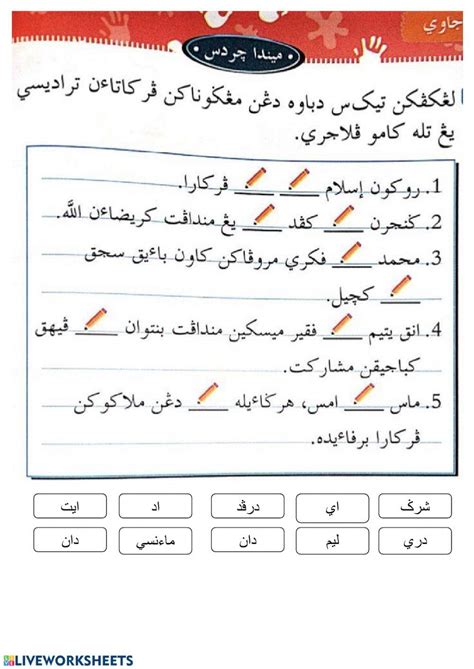 جاوي
• ميندا چردس •
لڠکڤکن تيک‌س دباوه دڠن مڠݢوناکن ڤرکاتاءن تراديسي
يڠ تله کامو ڤلاجري.
1. روکون إسلام ____ ____ ڤرکارا.
2. ݢنجرن ____ کڤد ____ يڠ منداڤت کريضاءن الله.
3. محمد ____ فکري مروڤاکن کاون باءيق سجق
____ کچيل.
4. انق يتيم ____ فقير ميسکين منداڤت بنتوان ____ ڤيهق
کباجيقن مشارکت.
5. ماس ____ امس، هرݢاءيله ____ دڠن ملاکوکن
ڤرکارا برفاءيده.
شرݢ اي درڤد اد ايت
دري ليم دان ماءنسي دان
LIVEWORKSHEETS